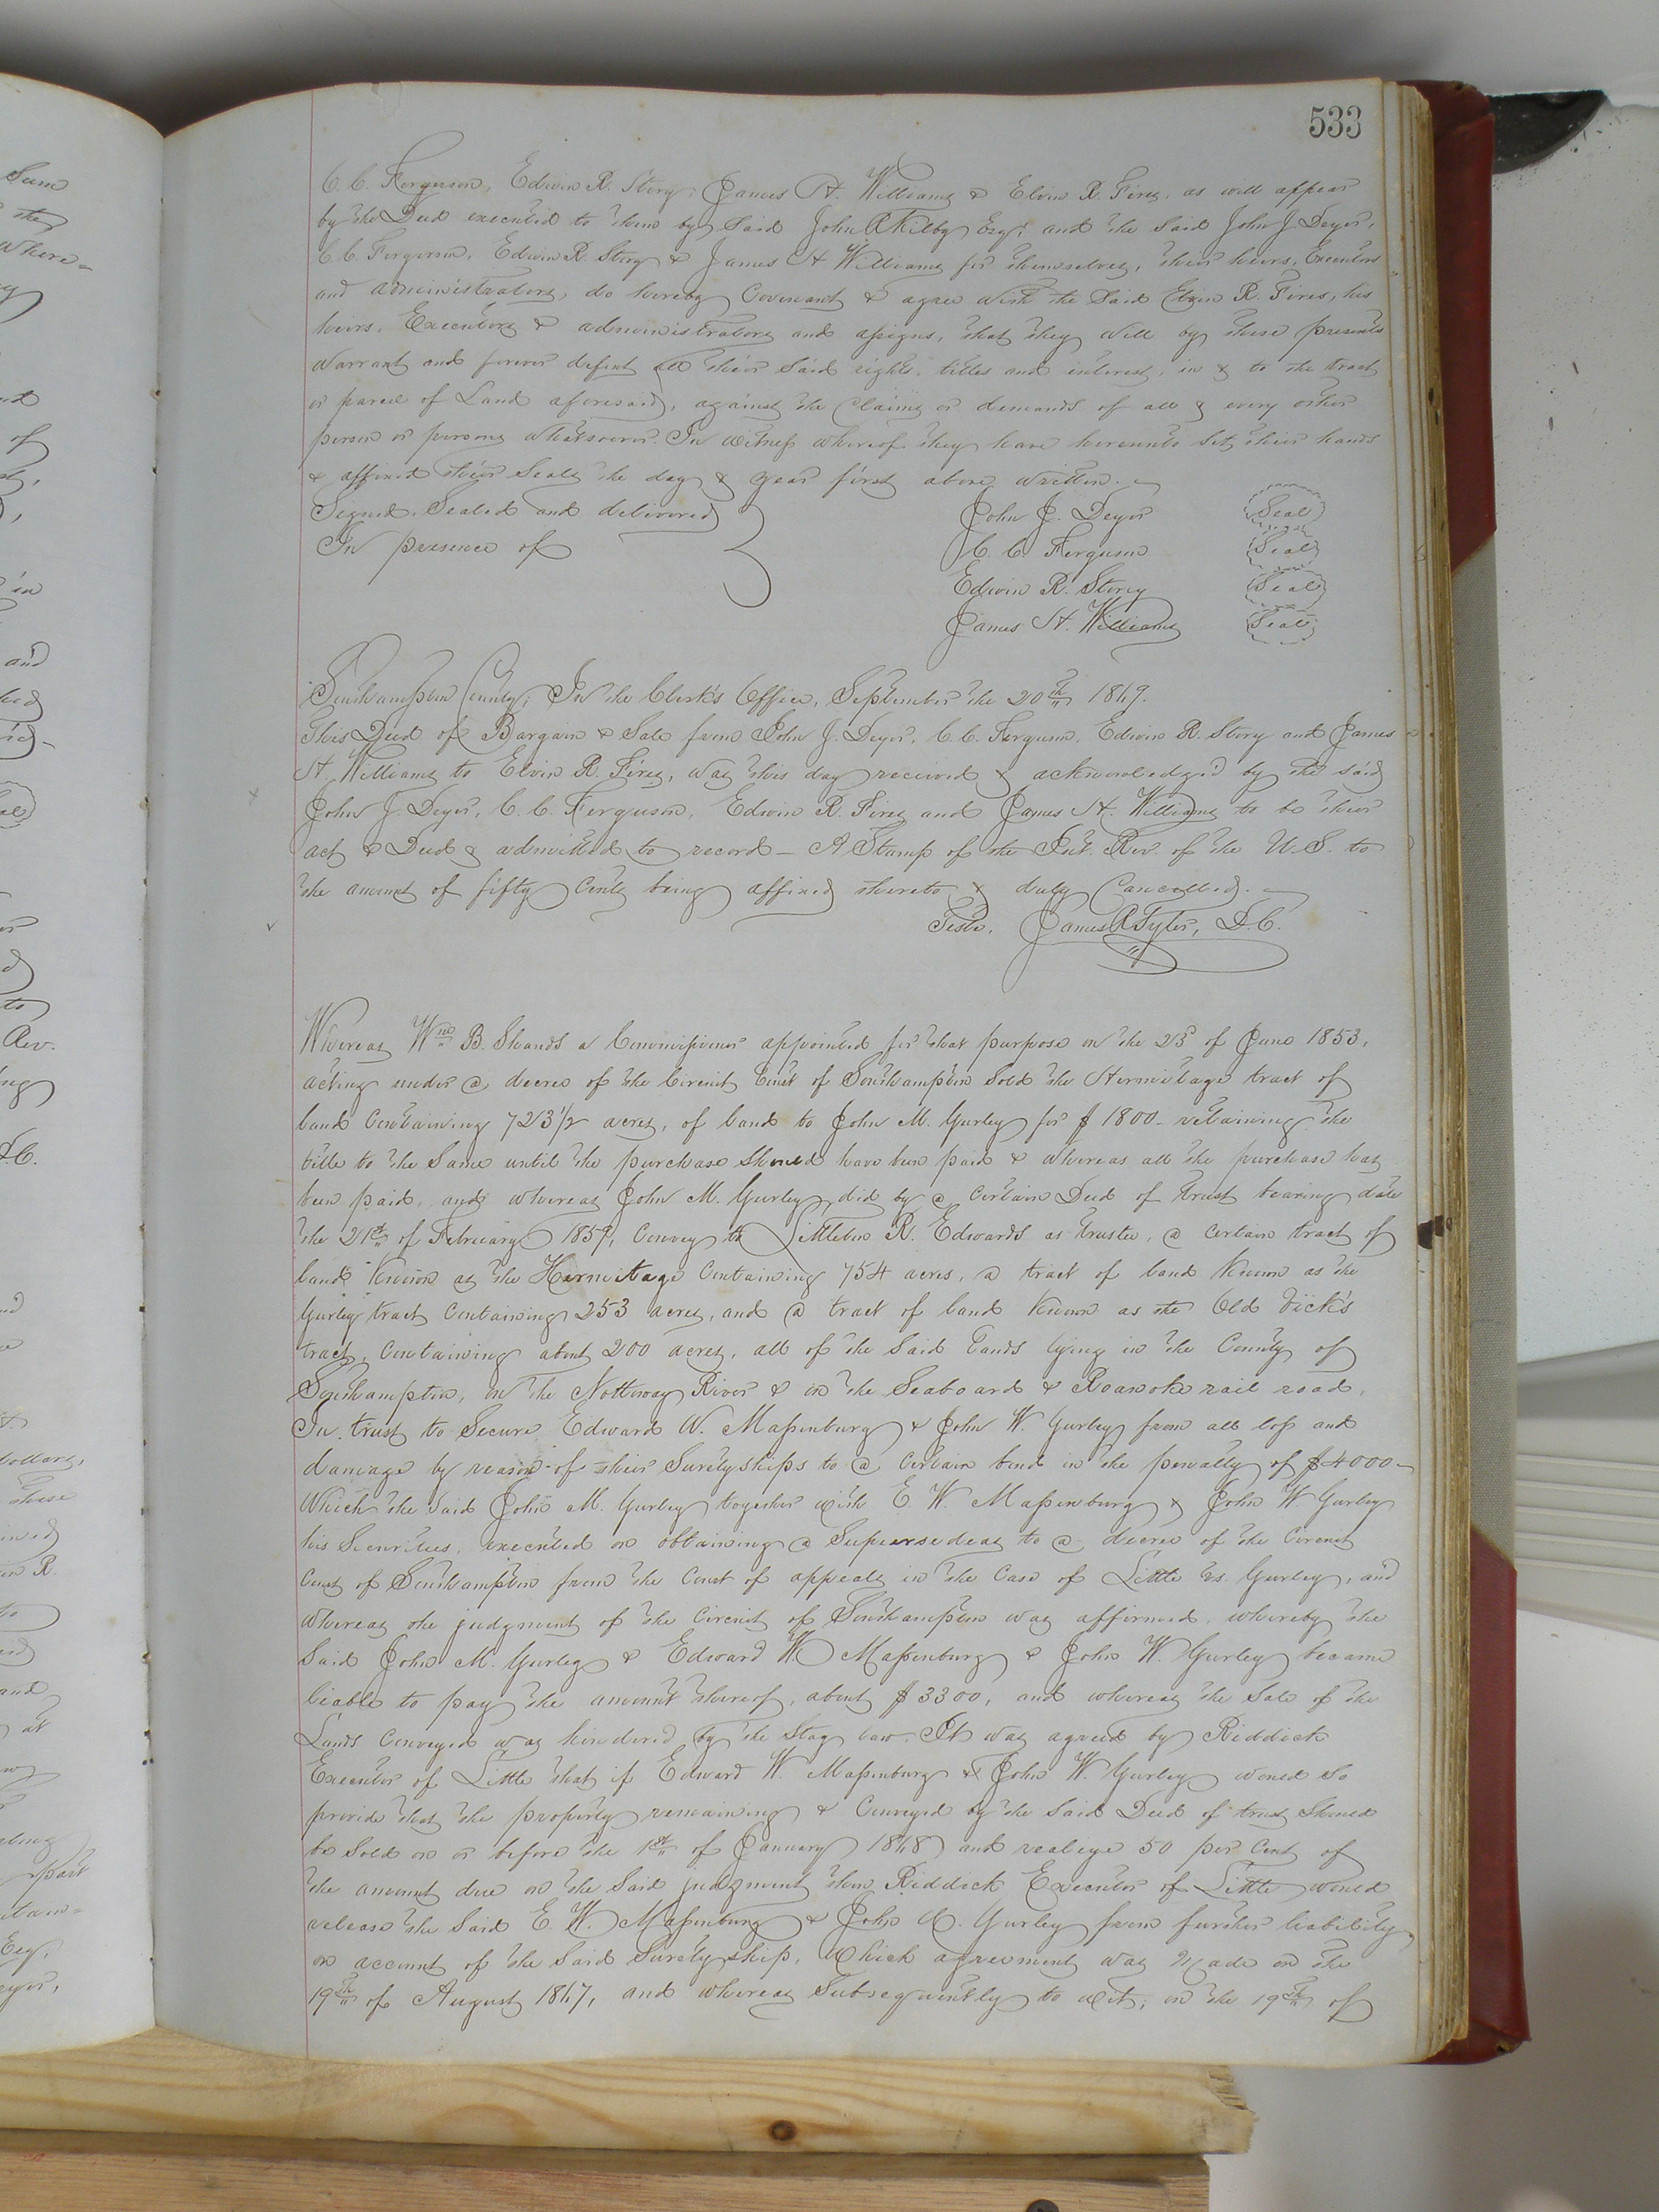 533
C. C. Ferguson, Edwin R. Story, James H. Williams & Elvin R. Fires, as will appear
by the Deed executed to them by Said John R Kilby Esqr; and the Said John J. Deyer,
C. C. Ferguson, Edwin R. Story & James H Williams for themselves, their heirs, Executors
and administrators, do hereby Covenant & agree with the Said Elvin R. Fires, his
heirs, Executors & administrators and assigns, that they will by these presents
Warrant and forever defend all their Said rights, titles and interest, in & to the tract
or parcel of Land aforesaid, against the Claims or demands of all & every other
person or persons whatsoever. In witness whereof they have hereunto Set their hands
& affixed their Seals the day & year first above written.
Signed, Sealed and delivered
In presence of
John J. Deyer Seal
C. C. Ferguson Seal
Edwin R. Story Seal
James H. Williams Seal
Southampton County; In the Clerk's Office, September the 20th 1869.
This Deed of Bargain & Sale from John J. Deyer, C. C. Ferguson, Edwin R. Story and James
H. Williams to Elvin R. Fires, was this day received & acknowledged by the said
John J. Deyer, C. C. Ferguson, Edwin R. Fires and James H. Williams to be their
act & Deed & admitted to record - A Stamp of the Int. Rev. of the U.S. to
the amount of fifty Cents being affixed thereto & duly Cancelled.
Teste, James R Tyler, D.C.
Whereas Wm B. Shands a Commissioner appointed for that purpose on the 23d of June 1853,
acting under a decree of the Circuit Court of Southampton Sold the Hermitage tract of
land Containing 723 1/2 acres, of land to John M. Gurley for $1800 - retaining the
title to the Same until the purchase Should have been paid & whereas all the purchase has
been paid, and whereas John M. Gurley, did by a Certain Deed of trust bearing date
the 21st of February 1859, Convey to Littleton R. Edwards as trustee, a Certain tract of
land Known as the Hermitage Containing 754 acres, a tract of land Known as the
Gurley tract Containing 253 acres, and a tract of land Known as the Old Dick's
tract, Containing about 200 acres, all of the Said Lands lying in the County of
Southampton, on the Nottoway River & on the Seaboard & Roanoke rail road,
In trust to Secure Edward W. Massenburg & John W. Gurley from all loss and
damage by reason of their Suretyships to a Certain bond in the penalty of $4000 -
Which the Said John M. Gurley together with E. W. Massenburg & John W Gurley
his Securities, executed on obtaining a Supersedeas to a decree of the Circuit
Court of Southampton from the Court of appeals in the Case of Little vs. Gurley, and
whereas the judgment of the Circuit of Southampton was affirmed, whereby the
Said John M. Gurley & Edward W Massenburg & John W. Gurley became
liable to pay the amount thereof, about $3300, and whereas the Sale of the
Lands Conveyed was hindered by the Stay law. It was agreed by Riddick
Executor of Little that if Edward W. Massenburg & John W. Gurley would So
provide that the property remaining & Conveyed by the Said Deed of trust Should
be Sold on or before the 1st of January 1868 and realize 50 per Cent of
the amount due on the Said judgment then Riddick Executor of Little would
release the Said E. W. Massenburg & John W. Gurley from further liability
on account of the Said Suretyship, Which agreement was Made on the
19th of August 1867, and whereas Subsequently to wit; on the 19th of